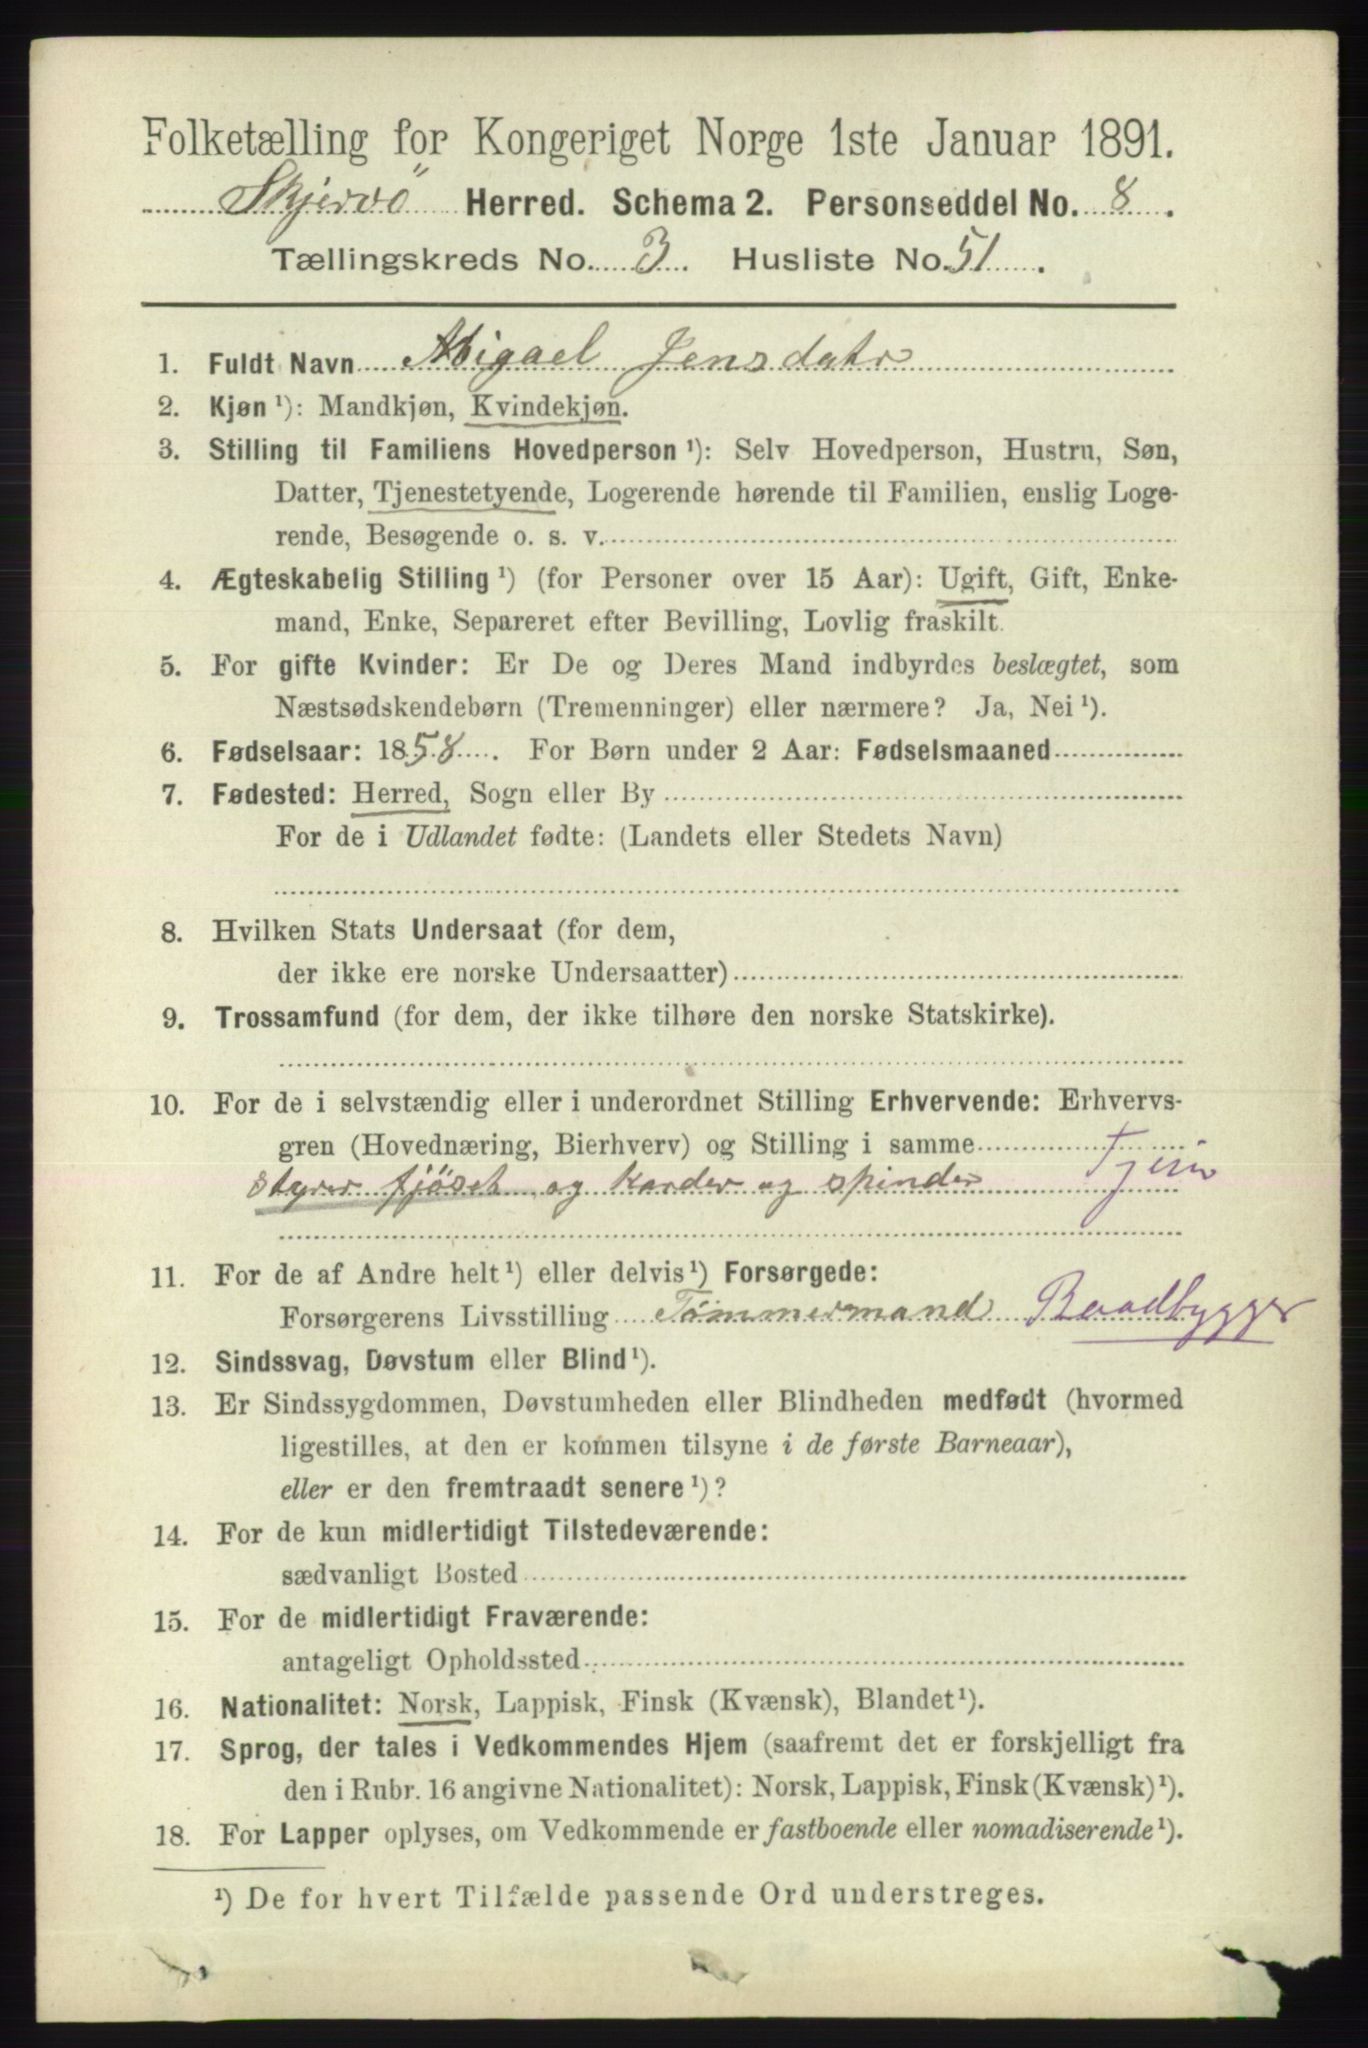 Folketælling for Kongeriget Norge 1ste Januar 1891.
Skjervö Herred. Schema 2. Personseddel No. 8.
Tællingskreds No. 3. Husliste No. 51.
1. Fuldt Navn Abigael Jensdatr
2. Kjøn ¹): Mandkjøn, Kvindekjøn.
3. Stilling til Familiens Hovedperson ¹): Selv Hovedperson, Hustru, Søn,
Datter, Tjenestetyende, Logerende hørende til Familien, enslig Loge-
rende, Besøgende o. s. v.
4. Ægteskabelig Stilling ¹) (for Personer over 15 Aar): Ugift, Gift, Enke-
mand, Enke, Separeret efter Bevilling, Lovlig fraskilt.
5. For gifte Kvinder: Er De og Deres Mand indbyrdes beslægtet, som
Næstsødskendebørn (Tremenninger) eller nærmere? Ja, Nei ¹).
6. Fødselsaar: 1858. For Børn under 2 Aar: Fødselsmaaned
7. Fødested: Herred, Sogn eller By
For de i Udlandet fødte: (Landets eller Stedets Navn)
8. Hvilken Stats Undersaat (for dem,
der ikke ere norske Undersaatter)
9. Trossamfund (for dem, der ikke tilhøre den norske Statskirke).
10. For de i selvstændig eller i underordnet Stilling Erhvervende: Erhvervs-
gren (Hovednæring, Bierhverv) og Stilling i samme
styrer fjöset og karder og spinder Tjen
11. For de af Andre helt ¹) eller delvis ¹) Forsørgede:
Forsørgerens Livsstilling Tømmermand Baadbygger
12. Sindssvag, Døvstum eller Blind ¹).
13. Er Sindssygdommen, Døvstumheden eller Blindheden medfødt (hvormed
ligestilles, at den er kommen tilsyne i de første Barneaar),
eller er den fremtraadt senere ¹)?
14. For de kun midlertidigt Tilstedeværende:
sædvanligt Bosted
15. For de midlertidigt Fraværende:
antageligt Opholdssted
16. Nationalitet: Norsk, Lappisk, Finsk (Kvænsk), Blandet ¹).
17. Sprog, der tales i Vedkommendes Hjem (saafremt det er forskjelligt fra
den i Rubr. 16 angivne Nationalitet): Norsk, Lappisk, Finsk (Kvænsk) ¹).
18. For Lapper oplyses, om Vedkommende er fastboende eller nomadiserende ¹).
¹) De for hvert Tilfælde passende Ord understreges.